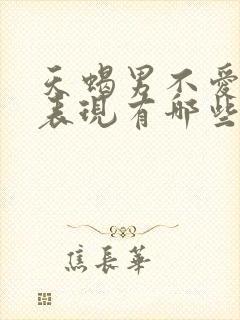 天蝎男不愛
表現有那些
焦長華